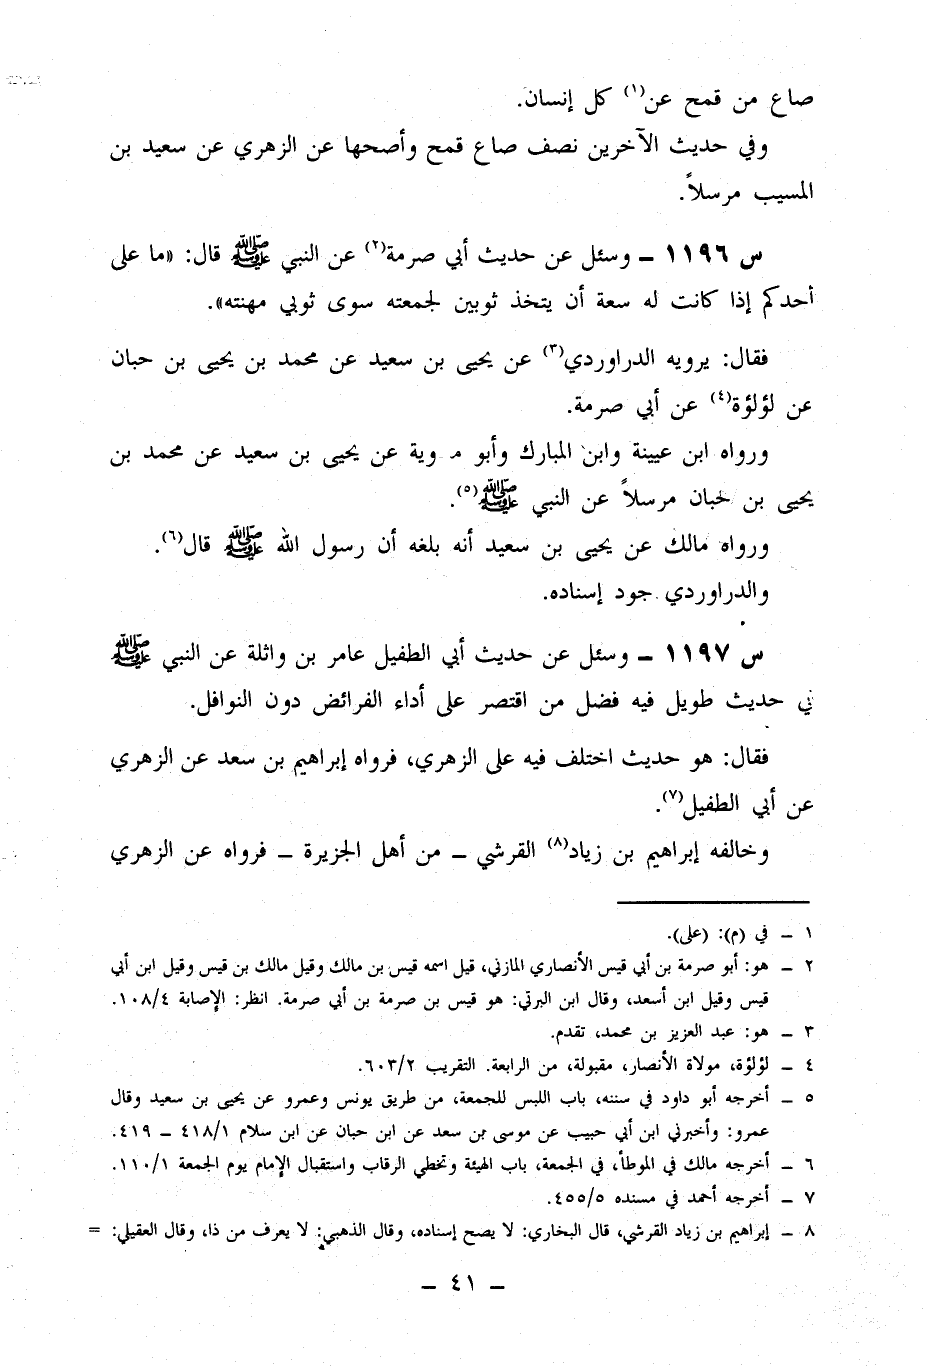 صاع من قمح عن(١) كل إنسان.
وفي حديث الآخرين نصف صاع قمح وأصحها عن الزهري عن سعيد بن
المسيب مرسلاً.
س ١١٩٦ ـ وسئل عن حديث أبي صرمة(٢) عن النبي ﷺ قال: «ما على
أحدكم إذا كانت له سعة أن يتخذ ثوبين لجمعته سوى ثوبي مهنته».
فقال: يرويه الدراوردي(٣) عن يحيى بن سعيد عن محمد بن يحيى بن حبان
عن لؤلؤة(٤) عن أبي صرمة.
ورواه ابن عيينة وابن المبارك وأبو م وية عن يحيى بن سعيد عن محمد بن
يحيى بن حبان مرسلاً عن النبي ﷺ(٥).
ورواه مالك عن يحيى بن سعيد أنه بلغه أن رسول الله ﷺ قال(٦).
والدراوردي جود إسناده.
س ١١٩٧ ـ وسئل عن حديث أبي الطفيل عامر بن واثلة عن النبي ﷺ
في حديث طويل فيه فضل من اقتصر على أداء الفرائض دون النوافل.
فقال: هو حديث اختلف فيه على الزهري، فرواه إبراهيم بن سعد عن الزهري
عن أبي الطفيل(٧).
وخالفه إبراهيم بن زياد(٨) القرشي ـ من أهل الجزيرة ـ فرواه عن الزهري
١ ـ في (م): (على).
٢ ـ هو: أبو صرمة بن أبي قيس الأنصاري المازني، قيل اسمه قيس بن مالك وقيل مالك بن قيس وقيل ابن أبي
قيس وقيل ابن أسعد، وقال ابن البرتي: هو قيس بن صرمة بن أبي صرمة. انظر: الإصابة ١٠٨/٤.
٣ ـ هو: عبد العزيز بن محمد، تقدم.
٤ ـ لؤلؤة، مولاة الأنصار، مقبولة، من الرابعة. التقريب ٦٠٣/٢.
٥ ـ أخرجه أبو داود في سننه، باب اللبس للجمعة، من طريق يونس وعمرو عن يحيى بن سعيد وقال
عمرو: وأخبرني ابن أبي حبيب عن موسى بن سعد عن ابن حبان عن ابن سلام ٤١٨/١ ـ ٤١٩.
٦ ـ أخرجه مالك في الموطأ، في الجمعة، باب الهيئة وتخطي الرقاب واستقبال الإمام يوم الجمعة ١١٠/١.
٧ ـ أخرجه أحمد في مسنده ٤٥٥/٥.
٨ ـ إبراهيم بن زياد القرشي، قال البخاري: لا يصح إسناده، وقال الذهبي: لا يعرف من ذا، وقال العقيلي: =
ـ ٤١ ـ